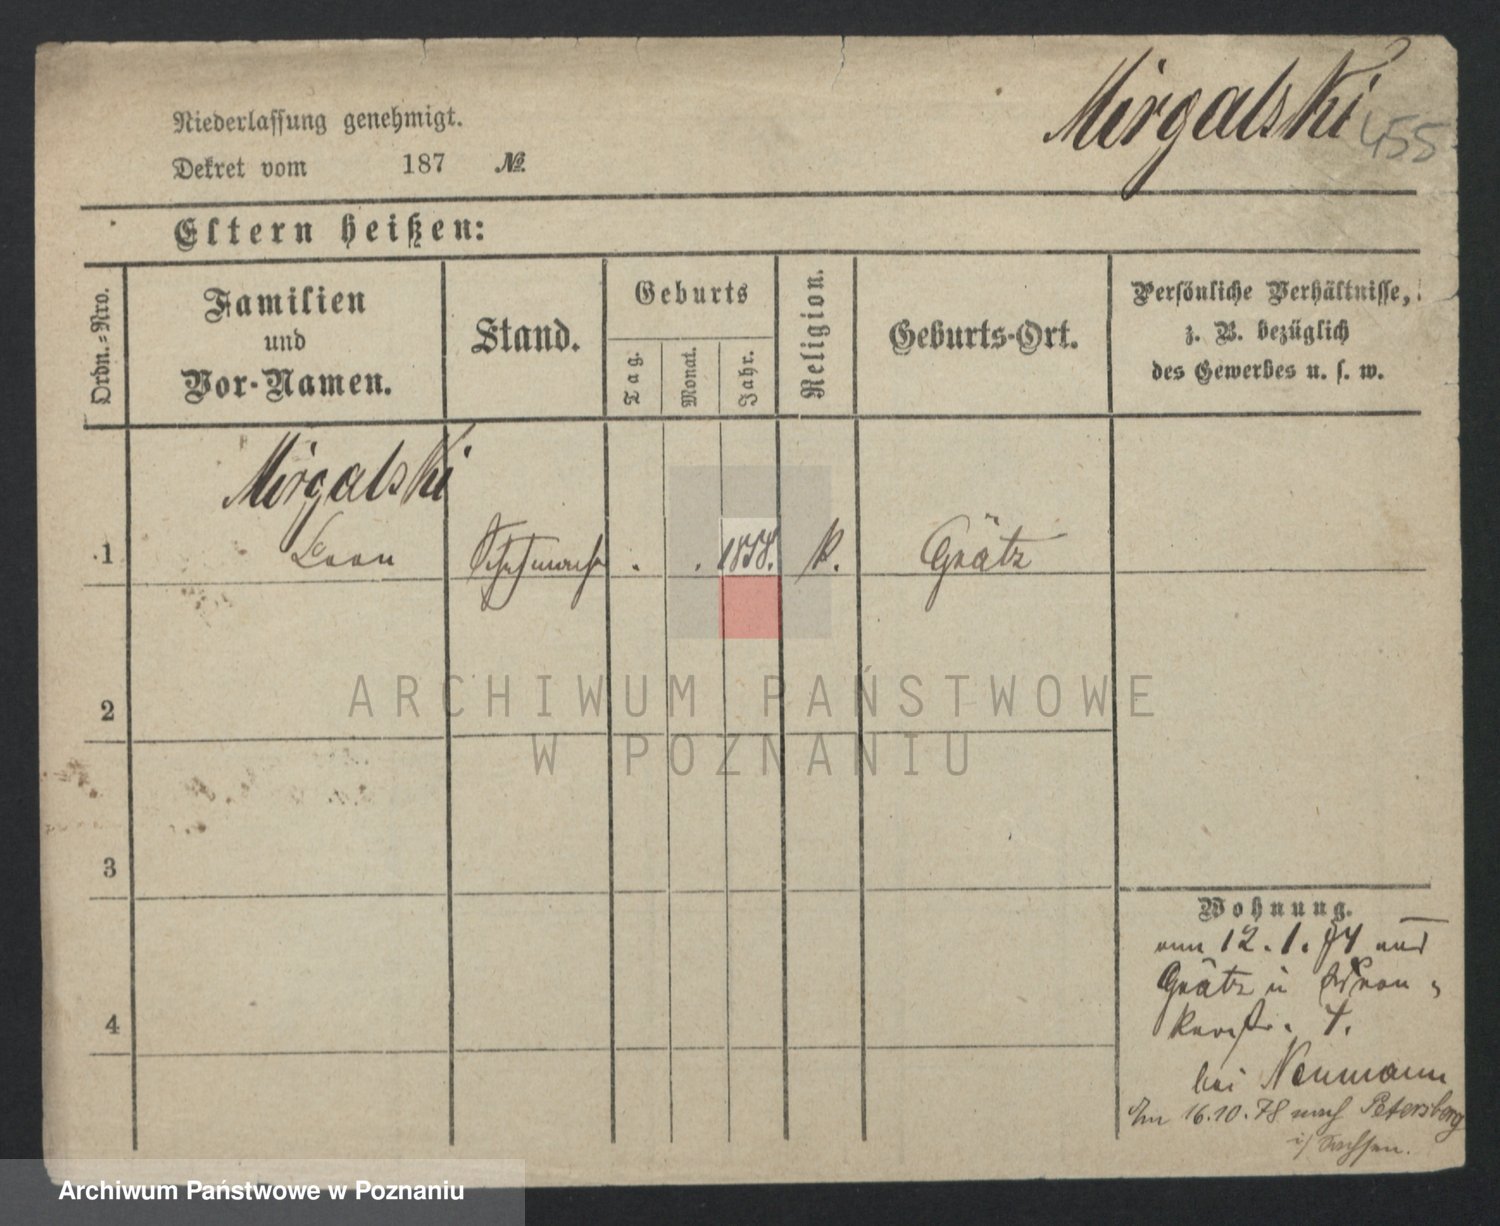 Mirgalski
455
Niederlassung genehmigt.
Dekret vom 187 №.
Eltern heißen:
Ordn.-Nro.
Familien
und
Vor-Namen.
Stand.
Geburts
Tag.
Monat.
Jahr.
Religion.
Geburts-Ort.
Persönliche Verhältnisse,
z. B. bezüglich
des Gewerbes u. s. w.
Mirgalski
1 Leon 1858. k. Grätz
2
3
4
Wohnung.
12.1.74 aus
Grätz
4.
bei Neumann
Am 16.10.78 nach Petersberg
i/ Sachsen.
ARCHIWUM PAŃSTWOWE
W POZNANIU
Archiwum Państwowe w Poznaniu